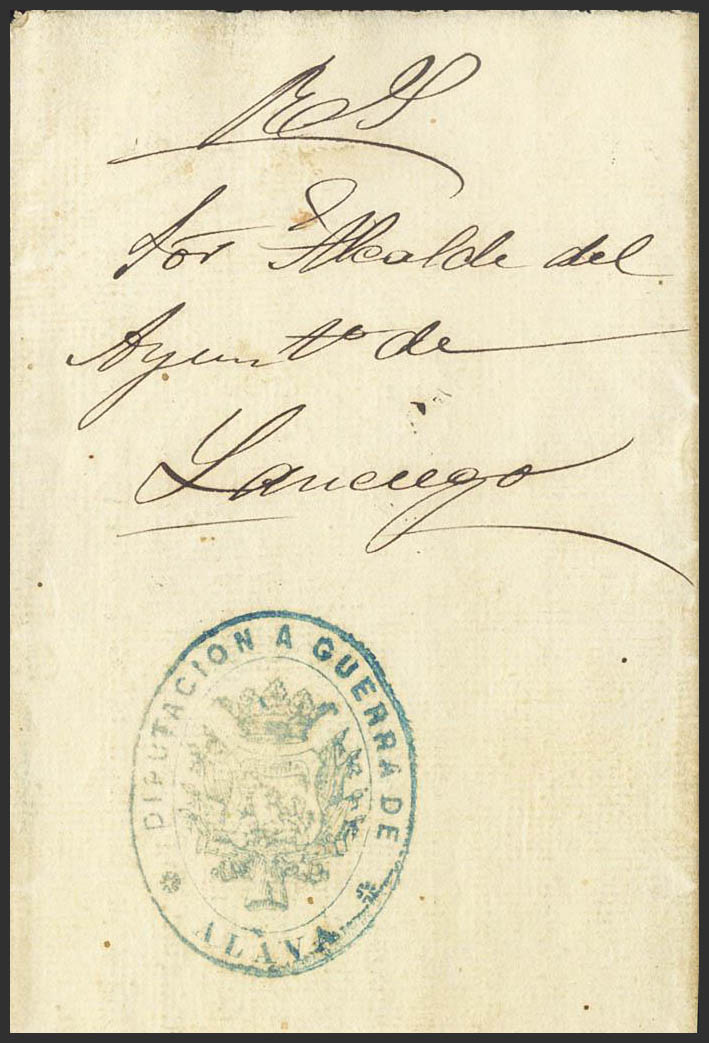 Sor Alcalde del
Ayunt.º de
Lanciego
DIPUTACION A GUERRA DE
ALAVA